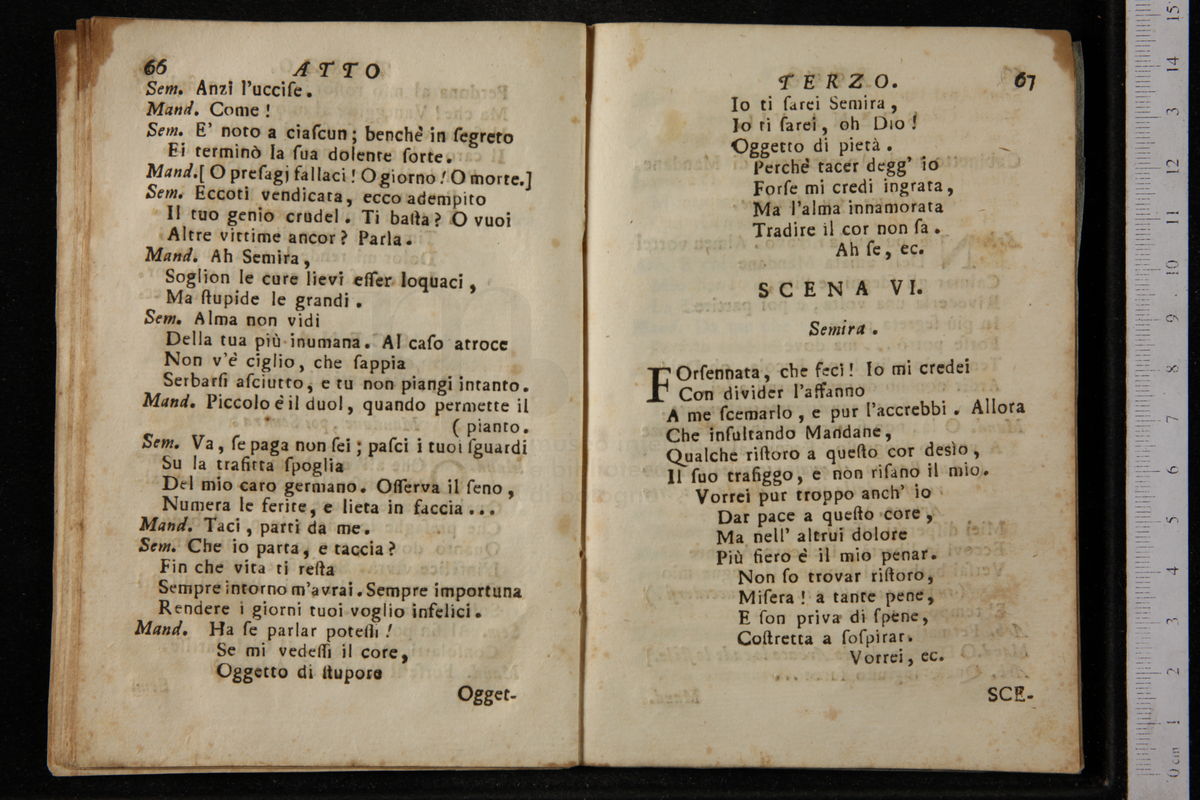 66 ATTO
Sem. Anzi l'ucciſe.
Mand. Come!
Sem. E' noto a ciaſcun; benchè in ſegreto
Ei terminò la ſua dolente ſorte.
Mand.[ O preſagj fallaci! O giorno! O morte.]
Sem. Eccoti vendicata, ecco adempito
Il tuo genio crudel. Ti baſta? O vuoi
Altre vittime ancor? Parla.
Mand. Ah Semira,
Soglion le cure lievi eſſer loquaci,
Ma ſtupide le grandi.
Sem. Alma non vidi
Della tua più inumana. Al caſo atroce
Non v'è ciglio, che ſappia
Serbarſi aſciutto, e tu non piangi intanto.
Mand. Piccolo è il duol, quando permette il
( pianto.
Sem. Va, ſe paga non ſei; paſci i tuoi ſguardi
Su la trafitta ſpoglia
Del mio caro germano. Oſſerva il ſeno,
Numera le ferite, e lieta in faccia...
Mand. Taci, parti da me.
Sem. Che io parta, e taccia?
Fin che vita ti reſta
Sempre intorno m'avrai. Sempre importuna
Rendere i giorni tuoi voglio infelici.
Mand. Ha ſe parlar poteſſi!
Se mi vedeſſi il core,
Oggetto di ſtupore
Ogget-
TERZO. 67
Io ti ſarei Semira,
Io ti ſarei, oh Dio!
Oggetto di pietà.
Perchè tacer degg' io
Forſe mi credi ingrata,
Ma l'alma innamorata
Tradire il cor non ſa.
Ah ſe, ec.
SCENA VI.
Semira.
FOrſennata, che feci! Io mi credei
Con divider l'affanno
A me ſcemarlo, e pur l'accrebbi. Allora
Che inſultando Mandane,
Qualche riſtoro a queſto cor desìo,
Il ſuo trafiggo, e non riſano il mio.
Vorrei pur troppo anch' io
Dar pace a queſto core,
Ma nell' altrui dolore
Più fiero è il mio penar.
Non ſo trovar riſtoro,
Miſera! a tante pene,
E ſon priva di ſpene,
Coſtretta a ſoſpirar.
Vorrei, ec.
SCE-